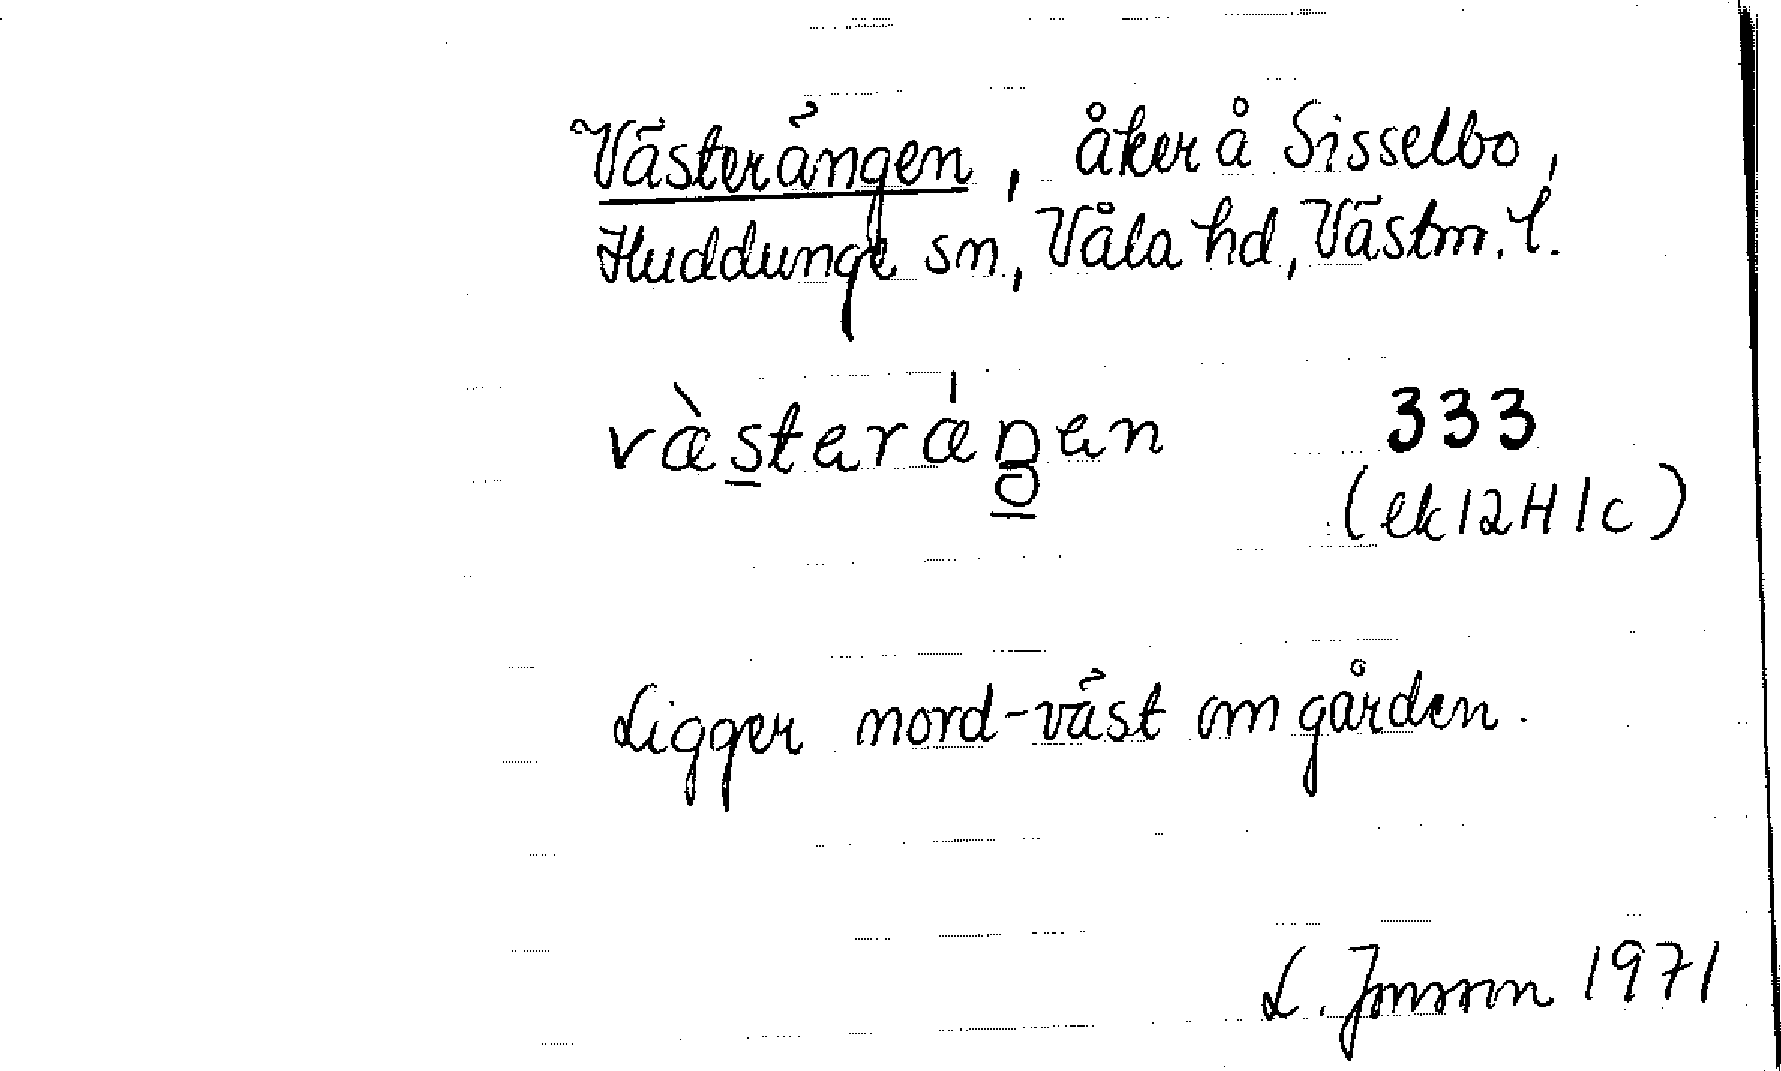 Västerängen, åker å Sisselbo,
Huddunge sn, Våla hd, Västm. l.
vàsteráŋen 333
(ek 12H1c)
Ligger nord-väst om gården.
L. Jonsson 1971